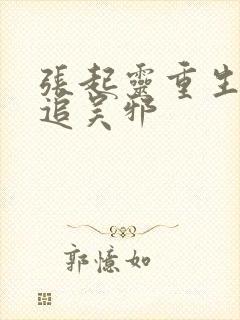 張起靈重生
追吴邪
郭憶如